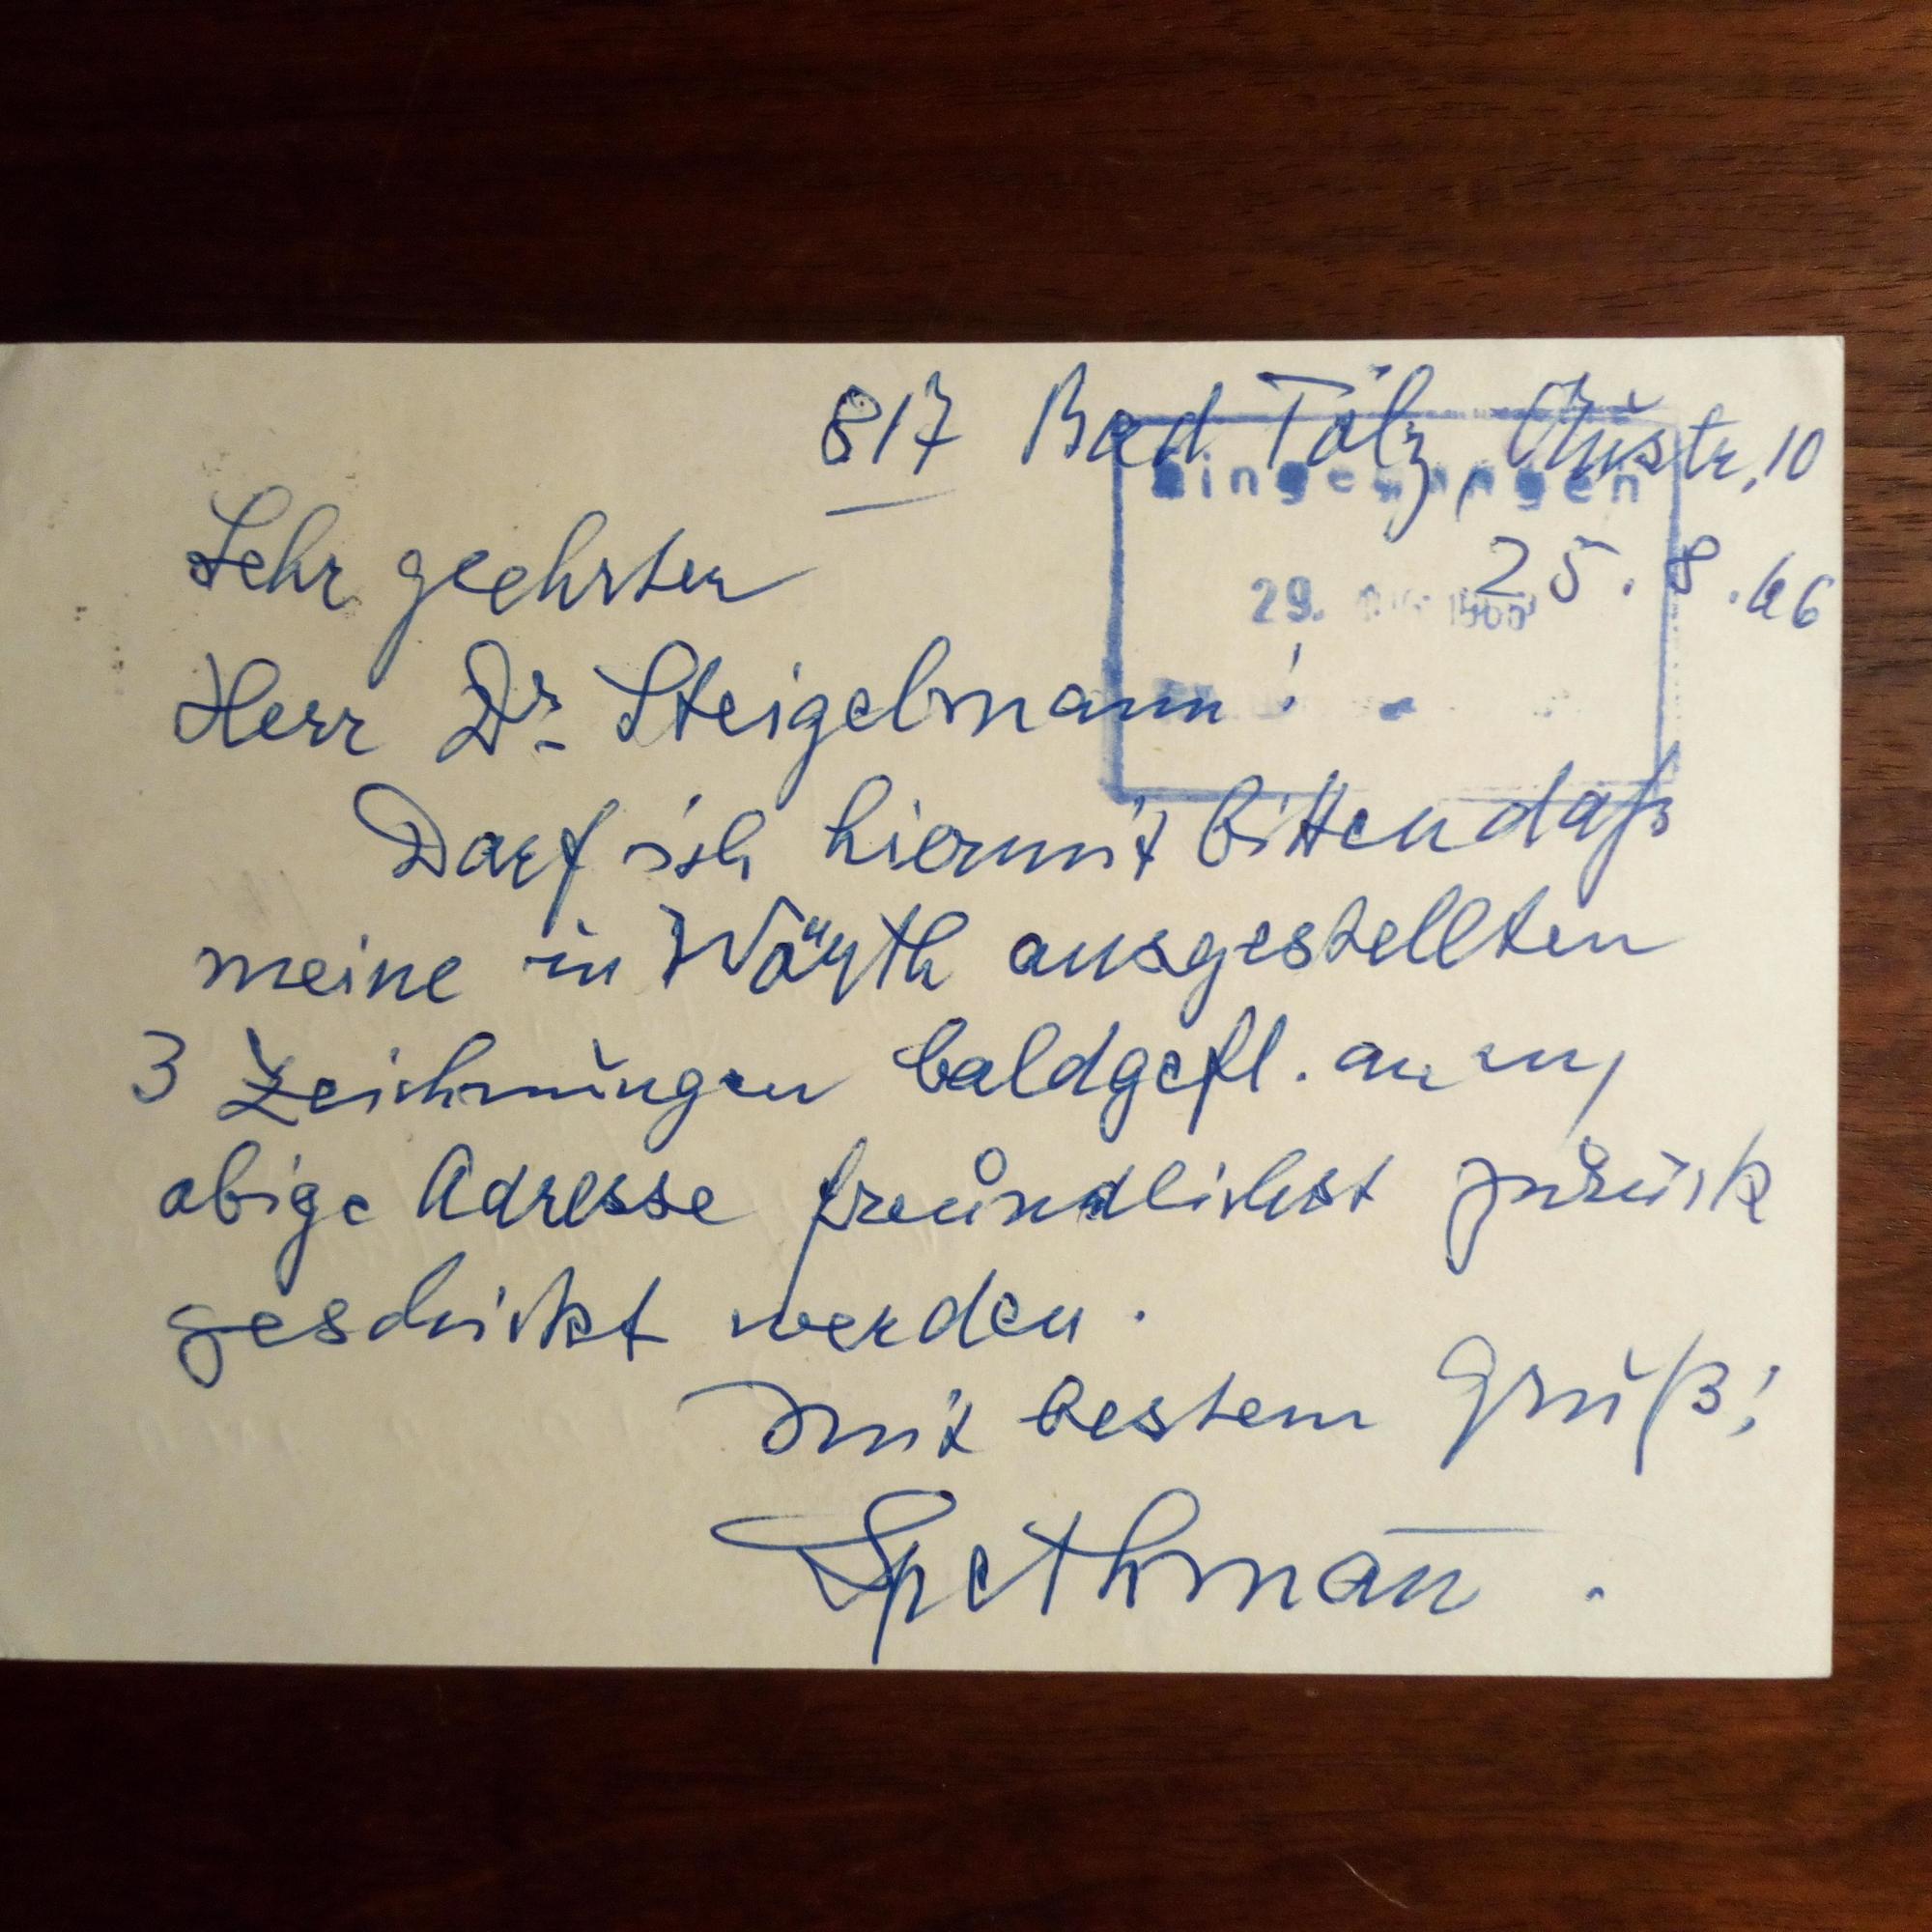 817 Bad Tölz, Austr. 10
Eingegangen
25.8.66
29.
Sehr geehrter
Herr Dr. Steigelmann!
Darf ich hiermit bitten daß
meine in Wörth ausgestellten
3 Zeichnungen baldgefl. an
abige Adresse freundlichst zurück
geschickt werden.
Mit bestem Gruß!
Spethman̄.